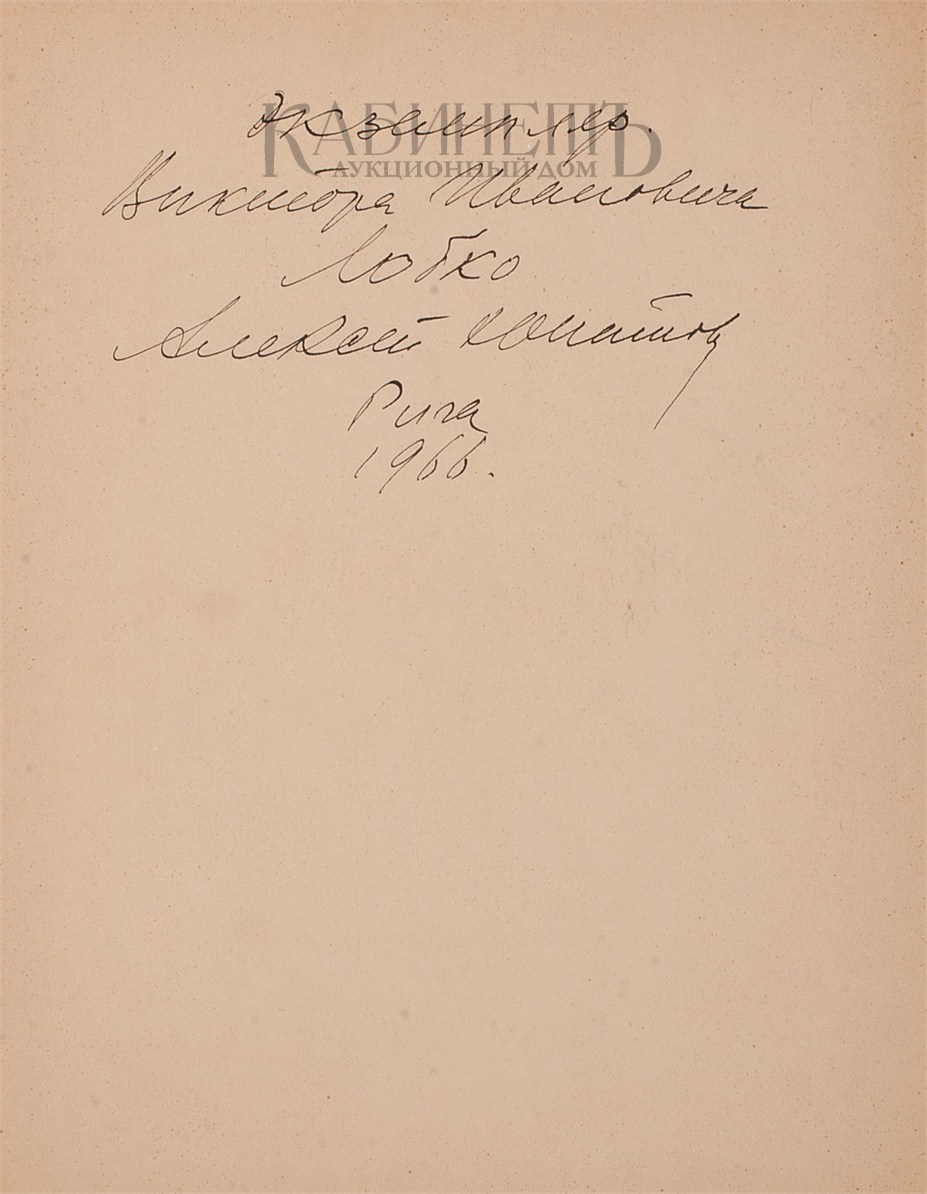 КАБИНЕТЪ
АУКЦИОННЫЙ ДОМ
Экземпляр.
Виктора Ивановича
Лобко
Алексей Юпатов
Рига
1966.